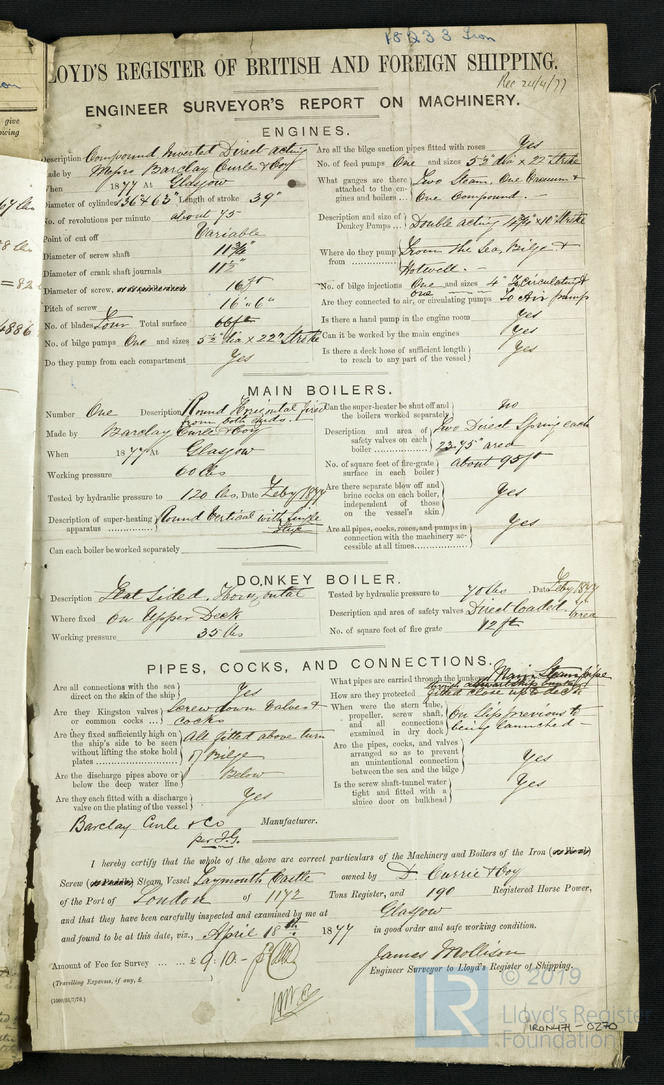 18233 Iron
LLOYD'S REGISTER OF BRITISH AND FOREIGN SHIPPING.
Rec 24/4/77
ENGINEER SURVEYOR'S REPORT ON MACHINERY.
ENGINES.
Description Compound Inverted Direct acting
Made by Messrs Barclay Curle & Coy
When 1877 At Glasgow
Diameter of cylinders 36" & 63" Length of stroke 39"
No. of revolutions per minute about 75
Point of cut off Variable
Diameter of screw shaft 11 3/4"
Diameter of crank shaft journals 11 1/2"
Diameter of screw, 16 ft
Pitch of screw 16' 6"
No. of blades Four Total surface 66 ft
No. of bilge pumps One and sizes 5 1/2" dia x 22" Stroke
Do they pump from each compartment Yes
Are all the bilge suction pipes fitted with roses Yes
No. of feed pumps One and sizes 5 1/2" dia x 22" Stroke
What gauges are there attached to the engines and boilers Two Steam, One Vacuum &
One Compound.
Description and size of Donkey Pumps Double acting x 10" Stroke
Where do they pump from From the Sea, Bilge &
Hotwell.
No. of bilge injections One and sizes 4" To circulating &
one to Air pump
Are they connected to air, or circulating pumps
Is there a hand pump in the engine room Yes
Can it be worked by the main engines Yes
Is there a deck hose of sufficient length to reach to any part of the vessel Yes
MAIN BOILERS.
Number One Description Round Horizontal fired
from both ends.
Made by Barclay Curle & Coy
When 1877 At Glasgow
Working pressure 60 lbs
Tested by hydraulic pressure to 120 lbs. Date Feby 1877
Description of super-heating apparatus Round Vertical with Single
Can each boiler be worked separately
Can the super-heater be shut off and the boilers worked separately No
Description and area of safety valves on each boiler Two Direct Spring each
23.75" area
No. of square feet of fire-grate surface in each boiler about 95 ft
Are there separate blow off and brine cocks on each boiler, independent of those on the vessel's skin Yes
Are all pipes, cocks, roses, and pumps in connection with the machinery accessible at all times Yes
DONKEY BOILER.
Description Flat Sided, Horizontal
Where fixed On Upper Deck
Working pressure 35 lbs
Tested by hydraulic pressure to 70 lbs. Date Feby 1877
Description and area of safety valves Direct loaded area
No. of square feet of fire grate 12 ft
PIPES, COCKS, AND CONNECTIONS.
Are all connections with the sea direct on the skin of the ship Yes
Are they Kingston valves or common cocks Screw down Valves &
cocks
Are they fixed sufficiently high on the ship's side to be seen without lifting the stoke hold plates All fitted above turn
of Bilge
Are the discharge pipes above or below the deep water line Below
Are they each fitted with a discharge valve on the plating of the vessel Yes
What pipes are carried through the bunkers Main Steam pipe
How are they protected fitted close up to deck
When were the stern tube, propeller, screw shaft, and all connections examined in dry dock On Slip previous to
being launched
Are the pipes, cocks, and valves arranged so as to prevent an unintentional connection between the sea and the bilge Yes
Is the screw shaft-tunnel water tight and fitted with a sluice door on bulkhead Yes
Barclay Curle & Co Manufacturer.
per J.G.
I hereby certify that the whole of the above are correct particulars of the Machinery and Boilers of the Iron
Screw Steam Vessel Taymouth Castle owned by D. Currie & Coy
of the Port of London of 1172 Tons Register, and 190 Registered Horse Power,
and that they have been carefully inspected and examined by me at Glasgow
and found to be at this date, viz., April 18th 1877 in good order and safe working condition.
James Mollison
Engineer Surveyor to Lloyd's Register of Shipping.
Amount of Fee for Survey £ 9.10.-
(Travelling Expenses, if any, £ )
LR
© 2019
Lloyd's Register
Foundation
IRON471-0270